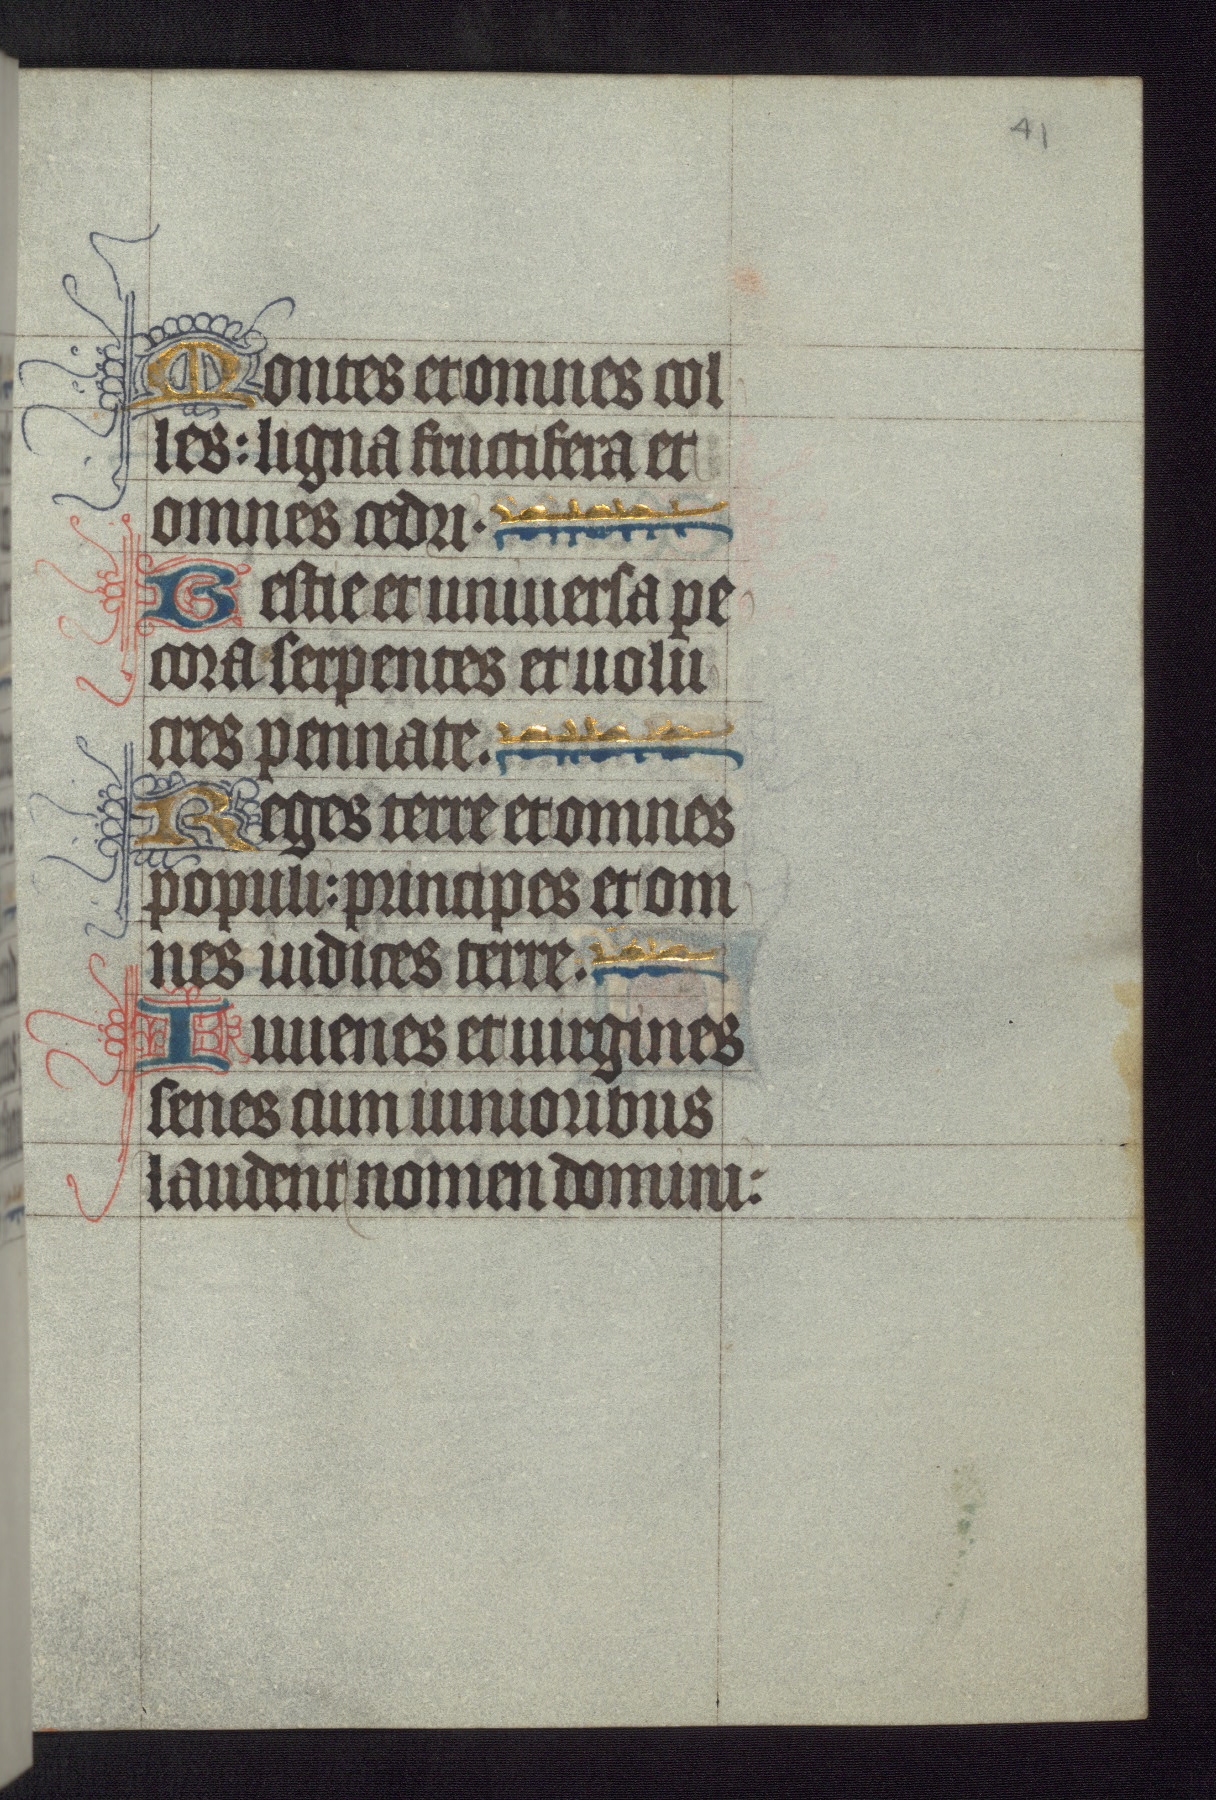 41
Montes et omnes col
les: ligna fructifera et
omnes cedri.
Bestie et uniuersa pe
cora serpentes et uolu
cres pennate.
Reges terre et omnes
populi: principes et om
nes iudices terre.
Iuuenes et uirgines
senes cum iunioribus
laudent nomen domini: